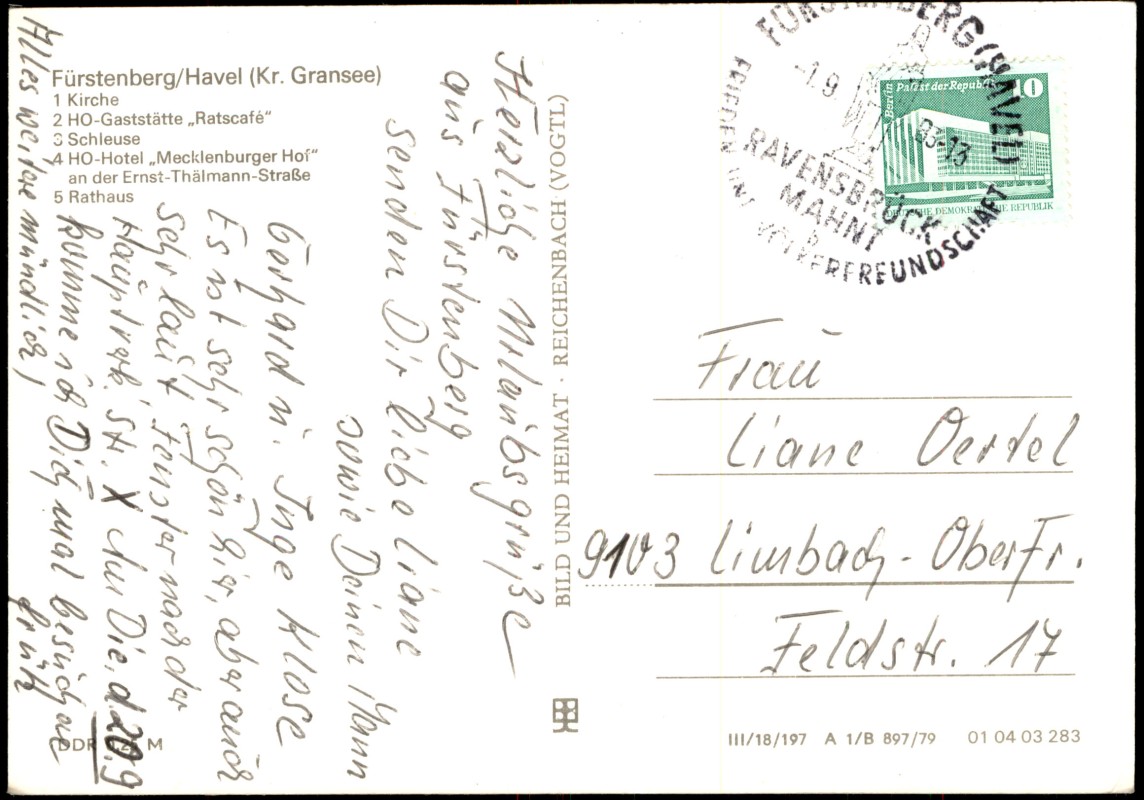 Fürstenberg/Havel (Kr. Gransee)
1 Kirche
2 HO-Gaststätte „Ratscafé“
3 Schleuse
4 HO-Hotel „Mecklenburger Hof“
an der Ernst-Thälmann-Straße
5 Rathaus
Herzliche Urlaubsgrüße
aus Fürstenberg
senden Dir liebe Liane
sowie Deinen Mann
Gerhard u. Inge Klose
Es ist sehr schön hier, aber auch
sehr laut Fenster nach der
Hauptverk. Str. X Am Die. d. 20.9
komme ich Dich mal besuchen
früh
Alles weitere mündlich,
DDR M
BILD UND HEIMAT · REICHENBACH (VOGTL)
FÜRSTENBERG (HAVEL)
-1.9. 83-13
RAVENSBRÜCK
MAHNT
FRIEDEN UND VÖLKERFREUNDSCHAFT
Berlin Palast der Republik 10
DEUTSCHE DEMOKRATISCHE REPUBLIK
Frau
Liane Oertel
9103 Limbach-Oberfr.
Feldstr. 17
III/18/197 A 1/B 897/79 01 04 03 283